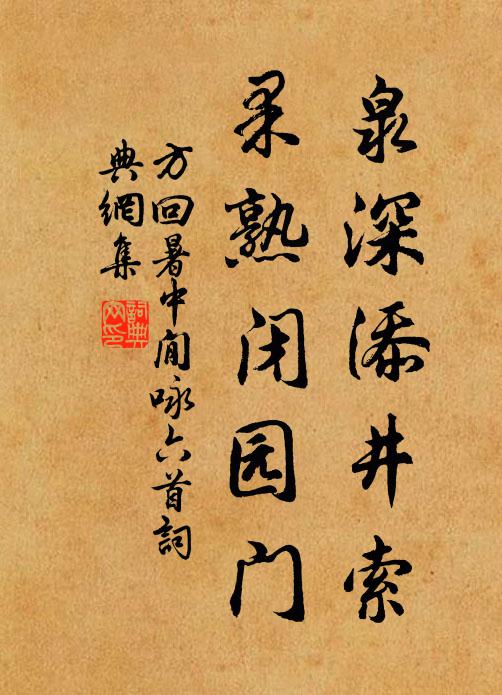 泉深添井索
果熟闭园门
方回暑中闲咏六首詞
典網集
詞典
网印